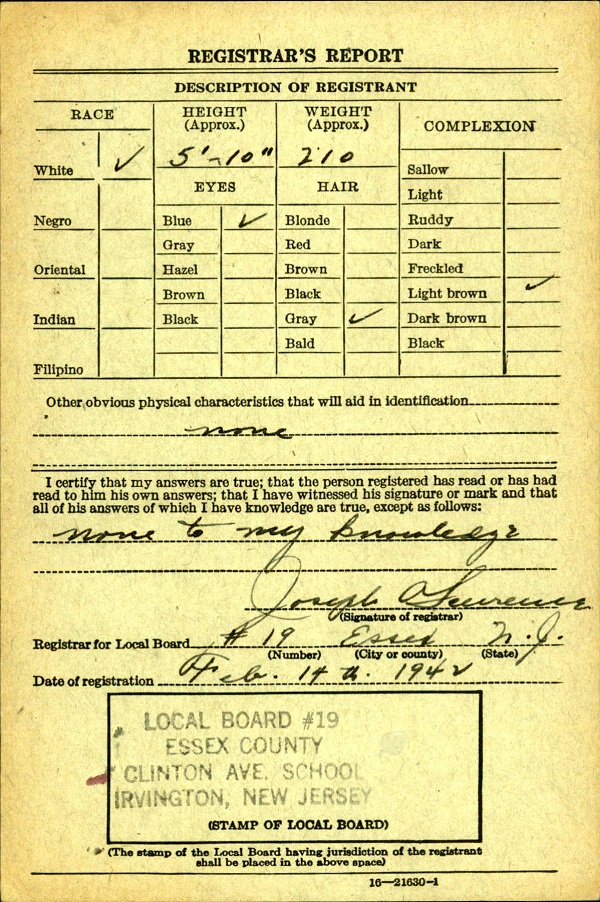 REGISTRAR'S REPORT
DESCRIPTION OF REGISTRANT
RACE
HEIGHT
(Approx.)
WEIGHT
(Approx.)
COMPLEXION
White ✓
5'-10"
210
Sallow
EYES
HAIR
Light
Negro
Blue ✓
Blonde
Ruddy
Gray
Red
Dark
Oriental
Hazel
Brown
Freckled
Brown
Black
Light brown ✓
Indian
Black
Gray ✓
Dark brown
Bald
Black
Filipino
Other obvious physical characteristics that will aid in identification
none
I certify that my answers are true; that the person registered has read or has had
read to him his own answers; that I have witnessed his signature or mark and that
all of his answers of which I have knowledge are true, except as follows:
none to my knowledge
Joseph Lawrence
(Signature of registrar)
Registrar for Local Board # 19 Essex N.J.
(Number) (City or county) (State)
Date of registration Feb. 1942
LOCAL BOARD #19
ESSEX COUNTY
CLINTON AVE. SCHOOL
IRVINGTON, NEW JERSEY
(STAMP OF LOCAL BOARD)
(The stamp of the Local Board having jurisdiction of the registrant
shall be placed in the above space)
16—21630-1